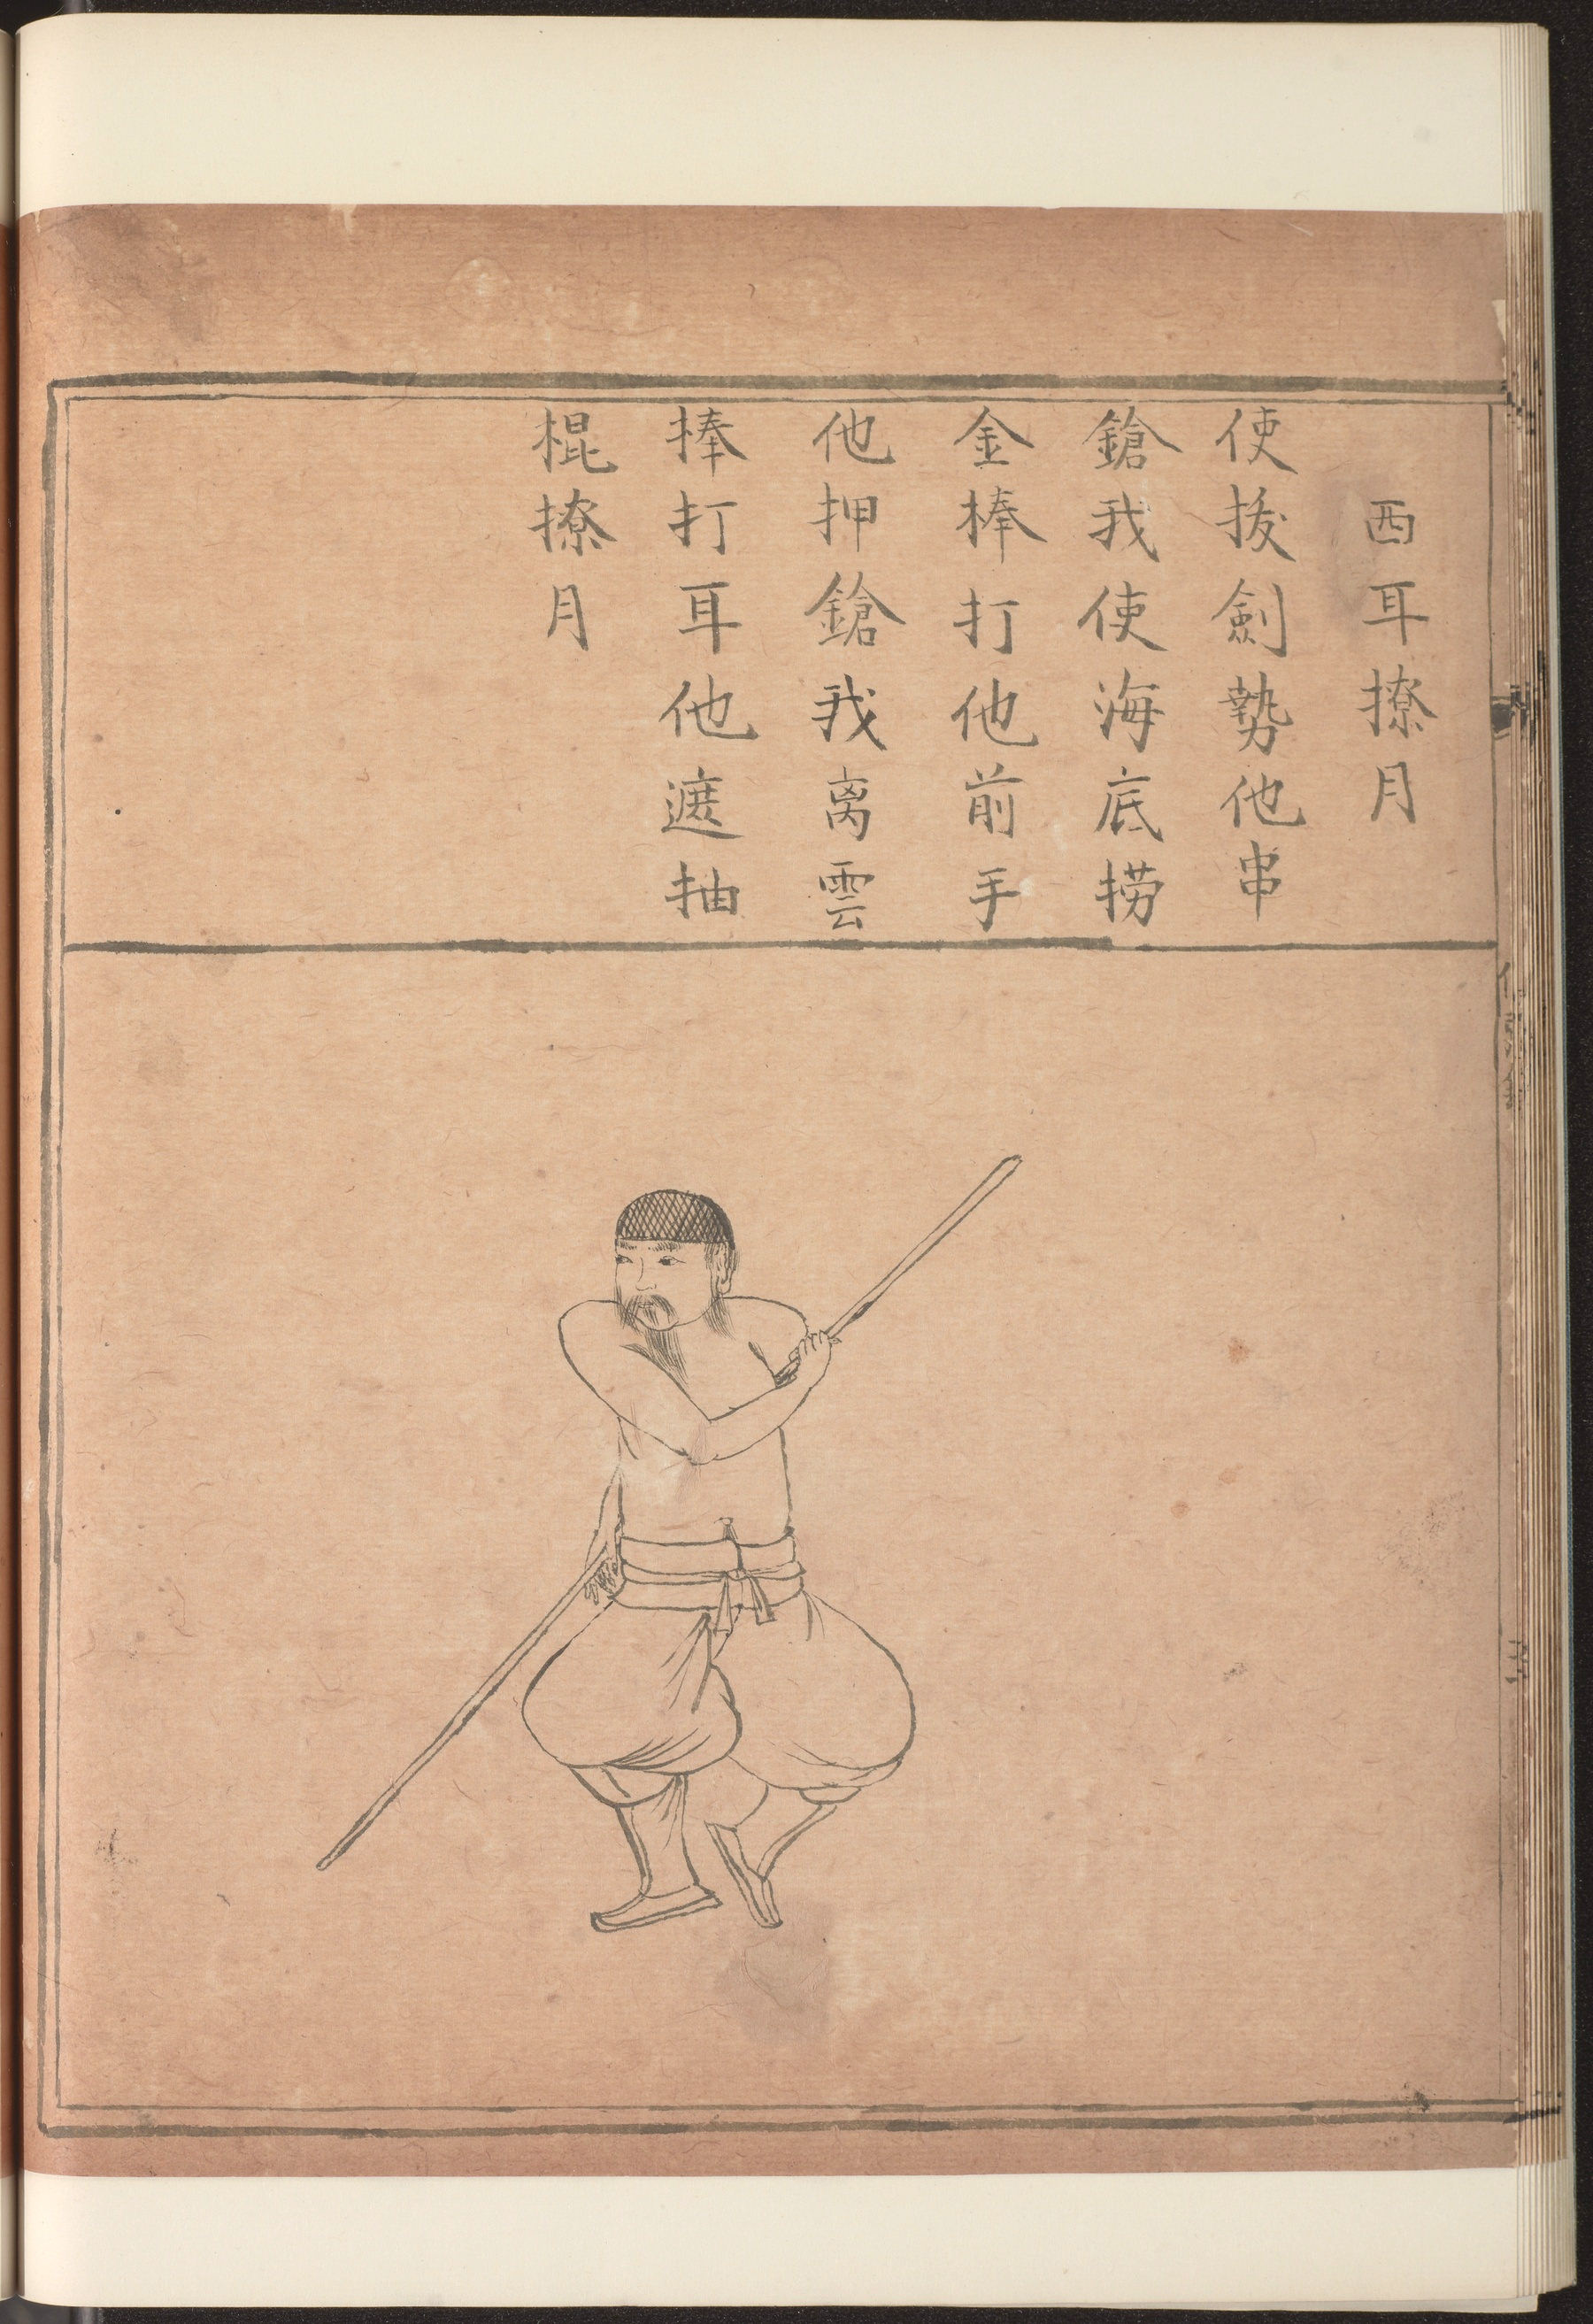 西耳撩月
使拔劍勢他串
鎗我使海底捞
金棒打他前手
他押鎗我离雲
捧打耳他遮抽
棍撩月